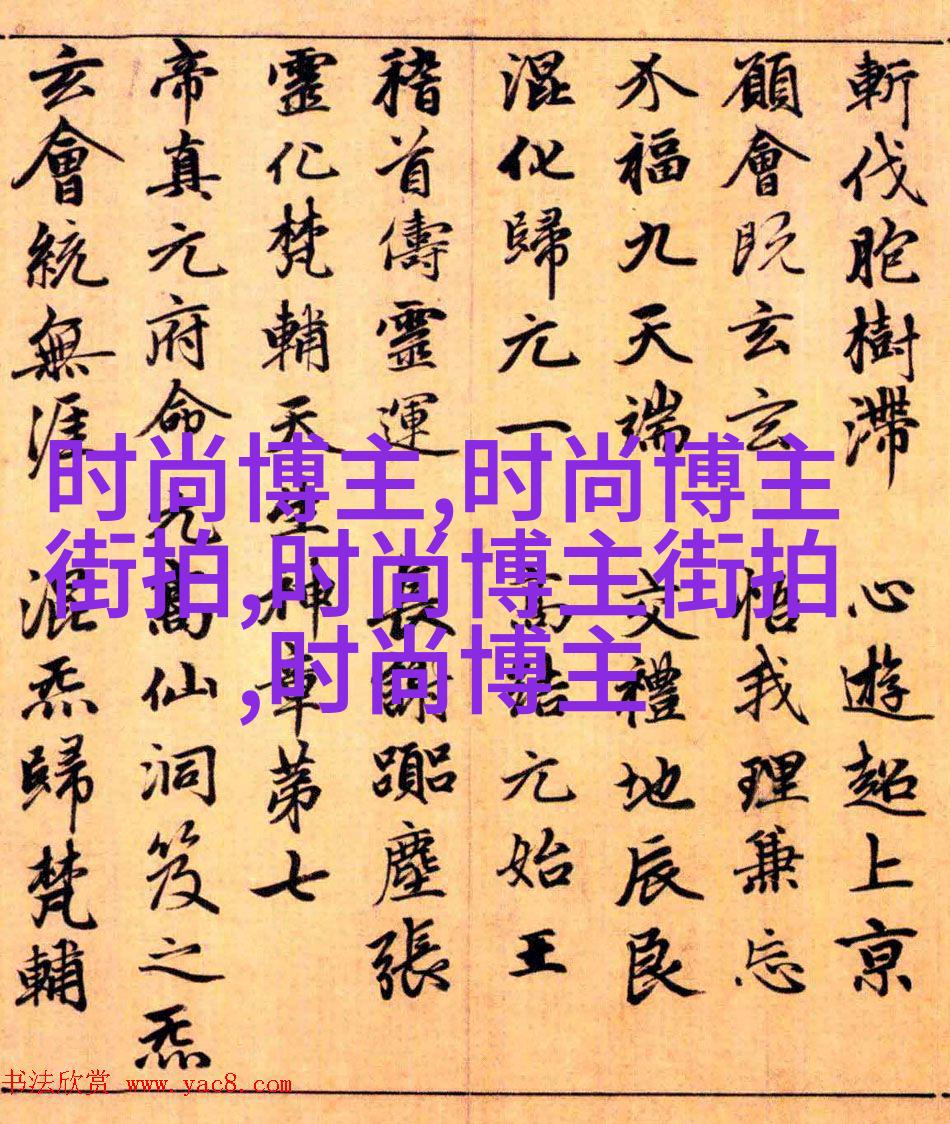 斬伐胞樹滯 心遊超上京
願會既玄玄 悟我理兼忘
介福九天端 交禮地辰良
混化歸元一 高結元始王
稽首儔靈運 長謝躐塵張
靈化梵輔天生神章第七
帝真元府命元高仙洞笈之炁
玄會統無涯 混炁歸梵輔
时尚博主,时尚博主
街拍,时尚博主街拍
,时尚博主
书法欣赏 www.yac8.com